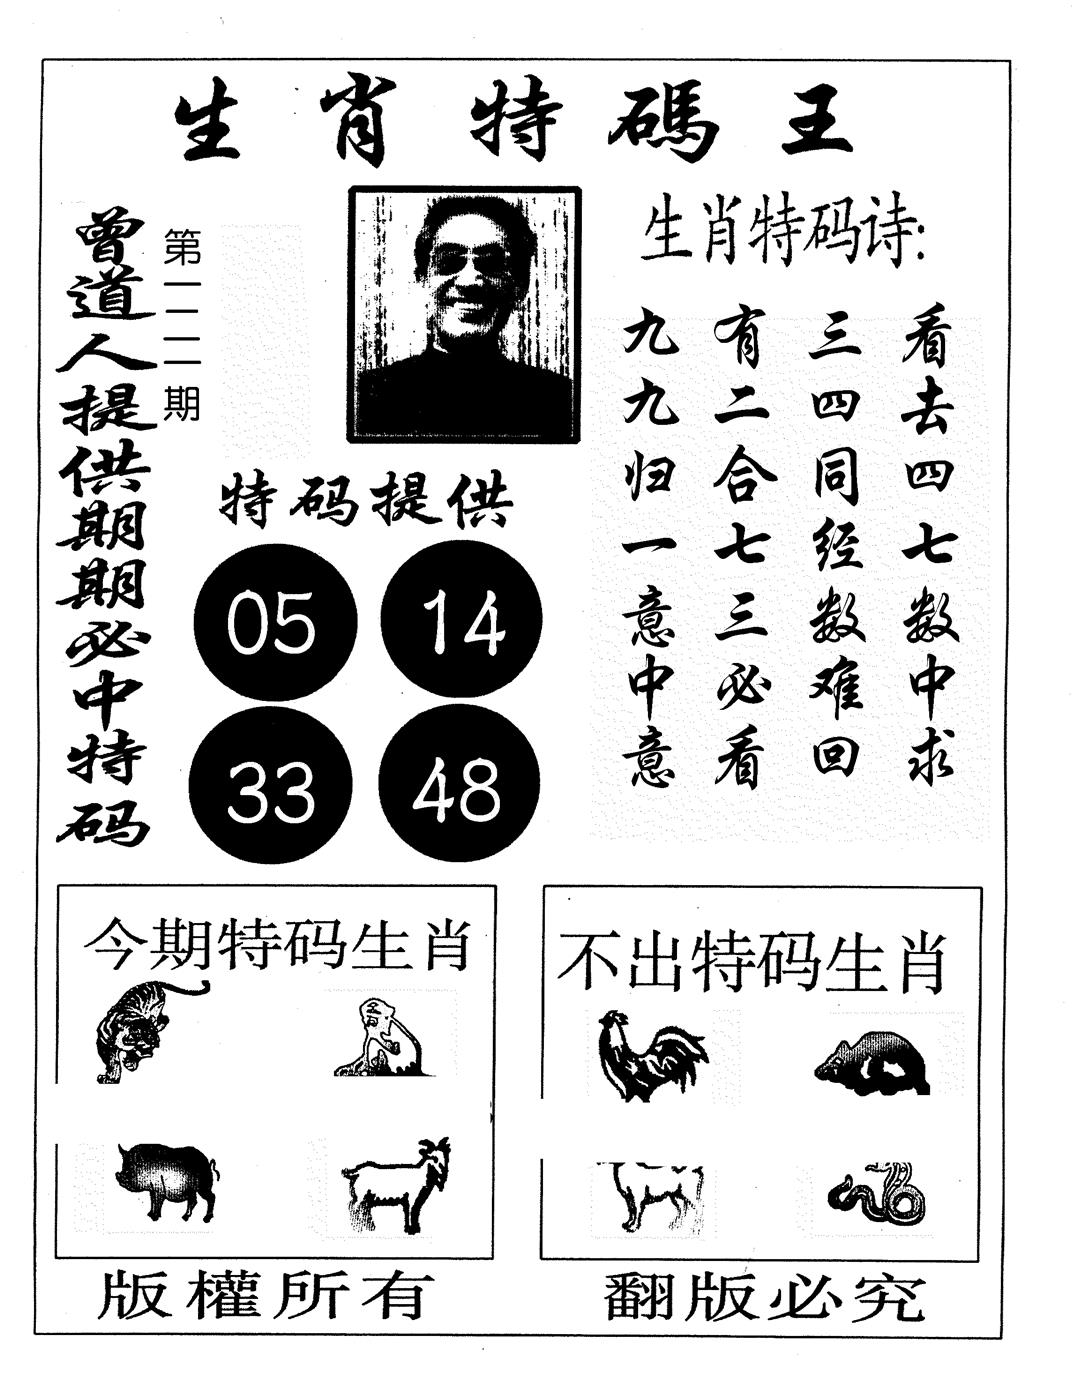 生肖特碼王
曾道人提供期期必中特码
第一二一期
特码提供
05 14
33 48
生肖特码诗:
九有三看
九二四去
归合同四
一七经七
意三数数
中必难中
意看回求
今期特码生肖
不出特码生肖
版權所有
翻版必究